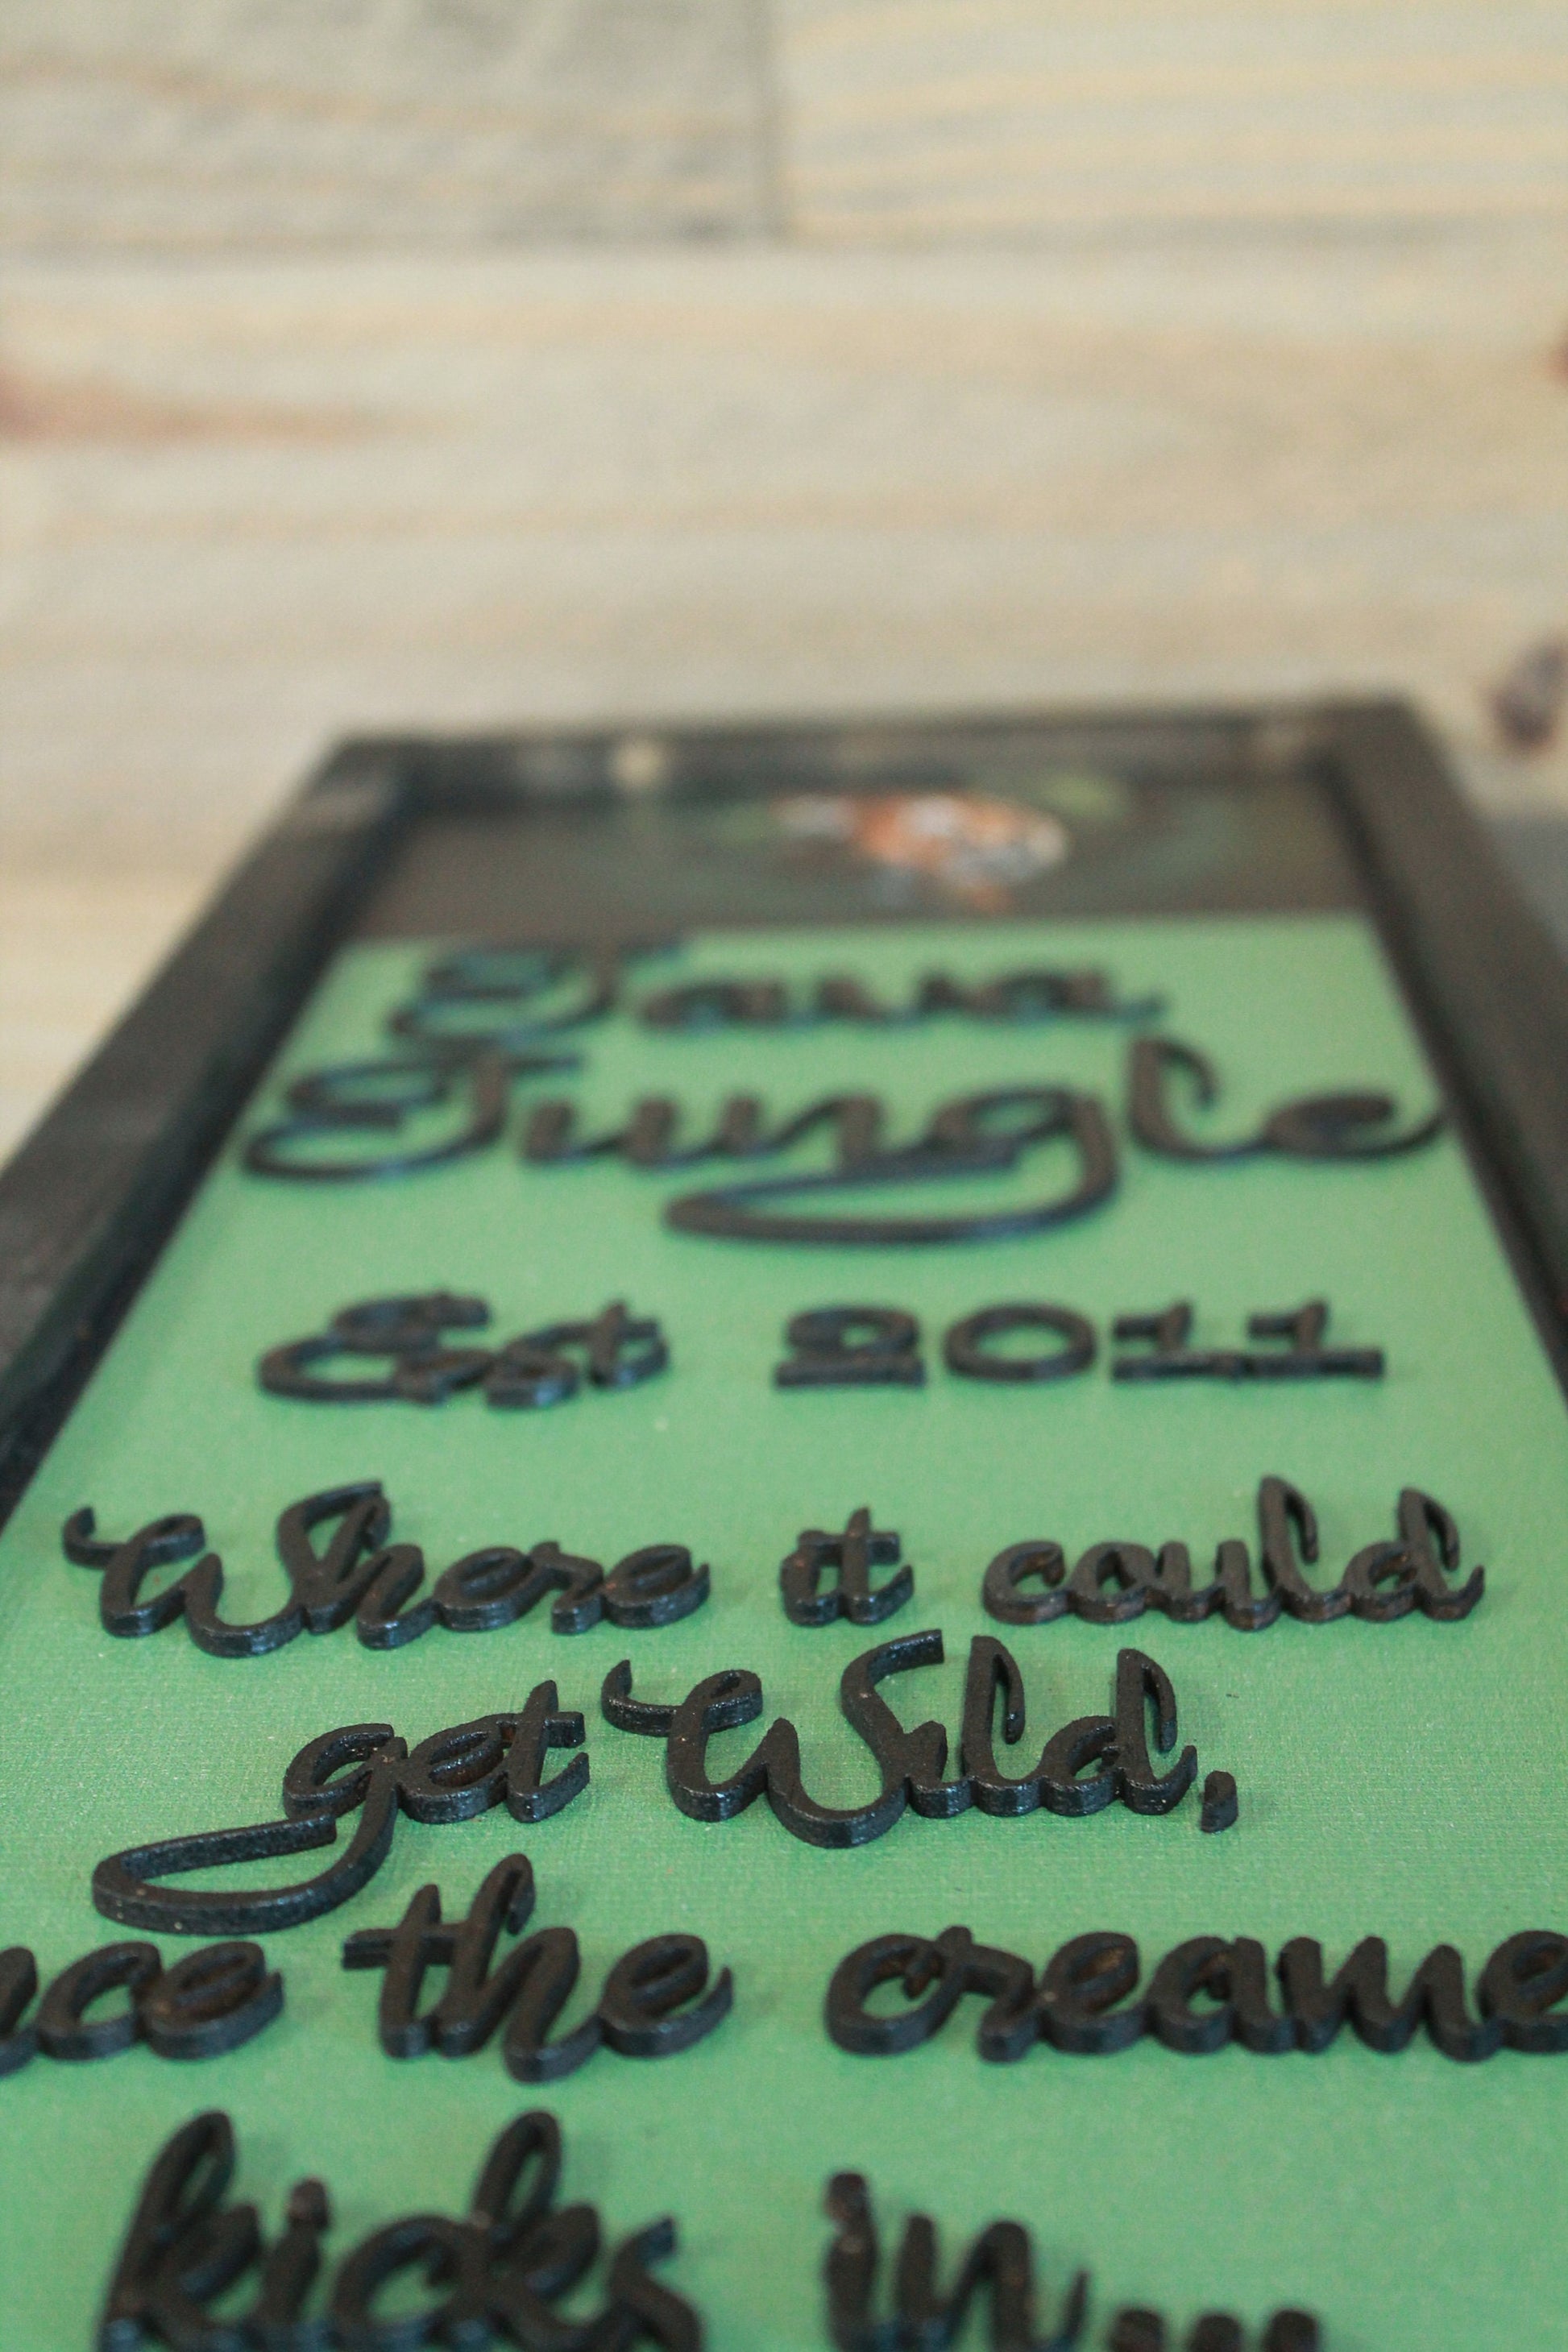 Java
Jungle
Est 2011
Where it could
get Wild,
the creame
kicks in...